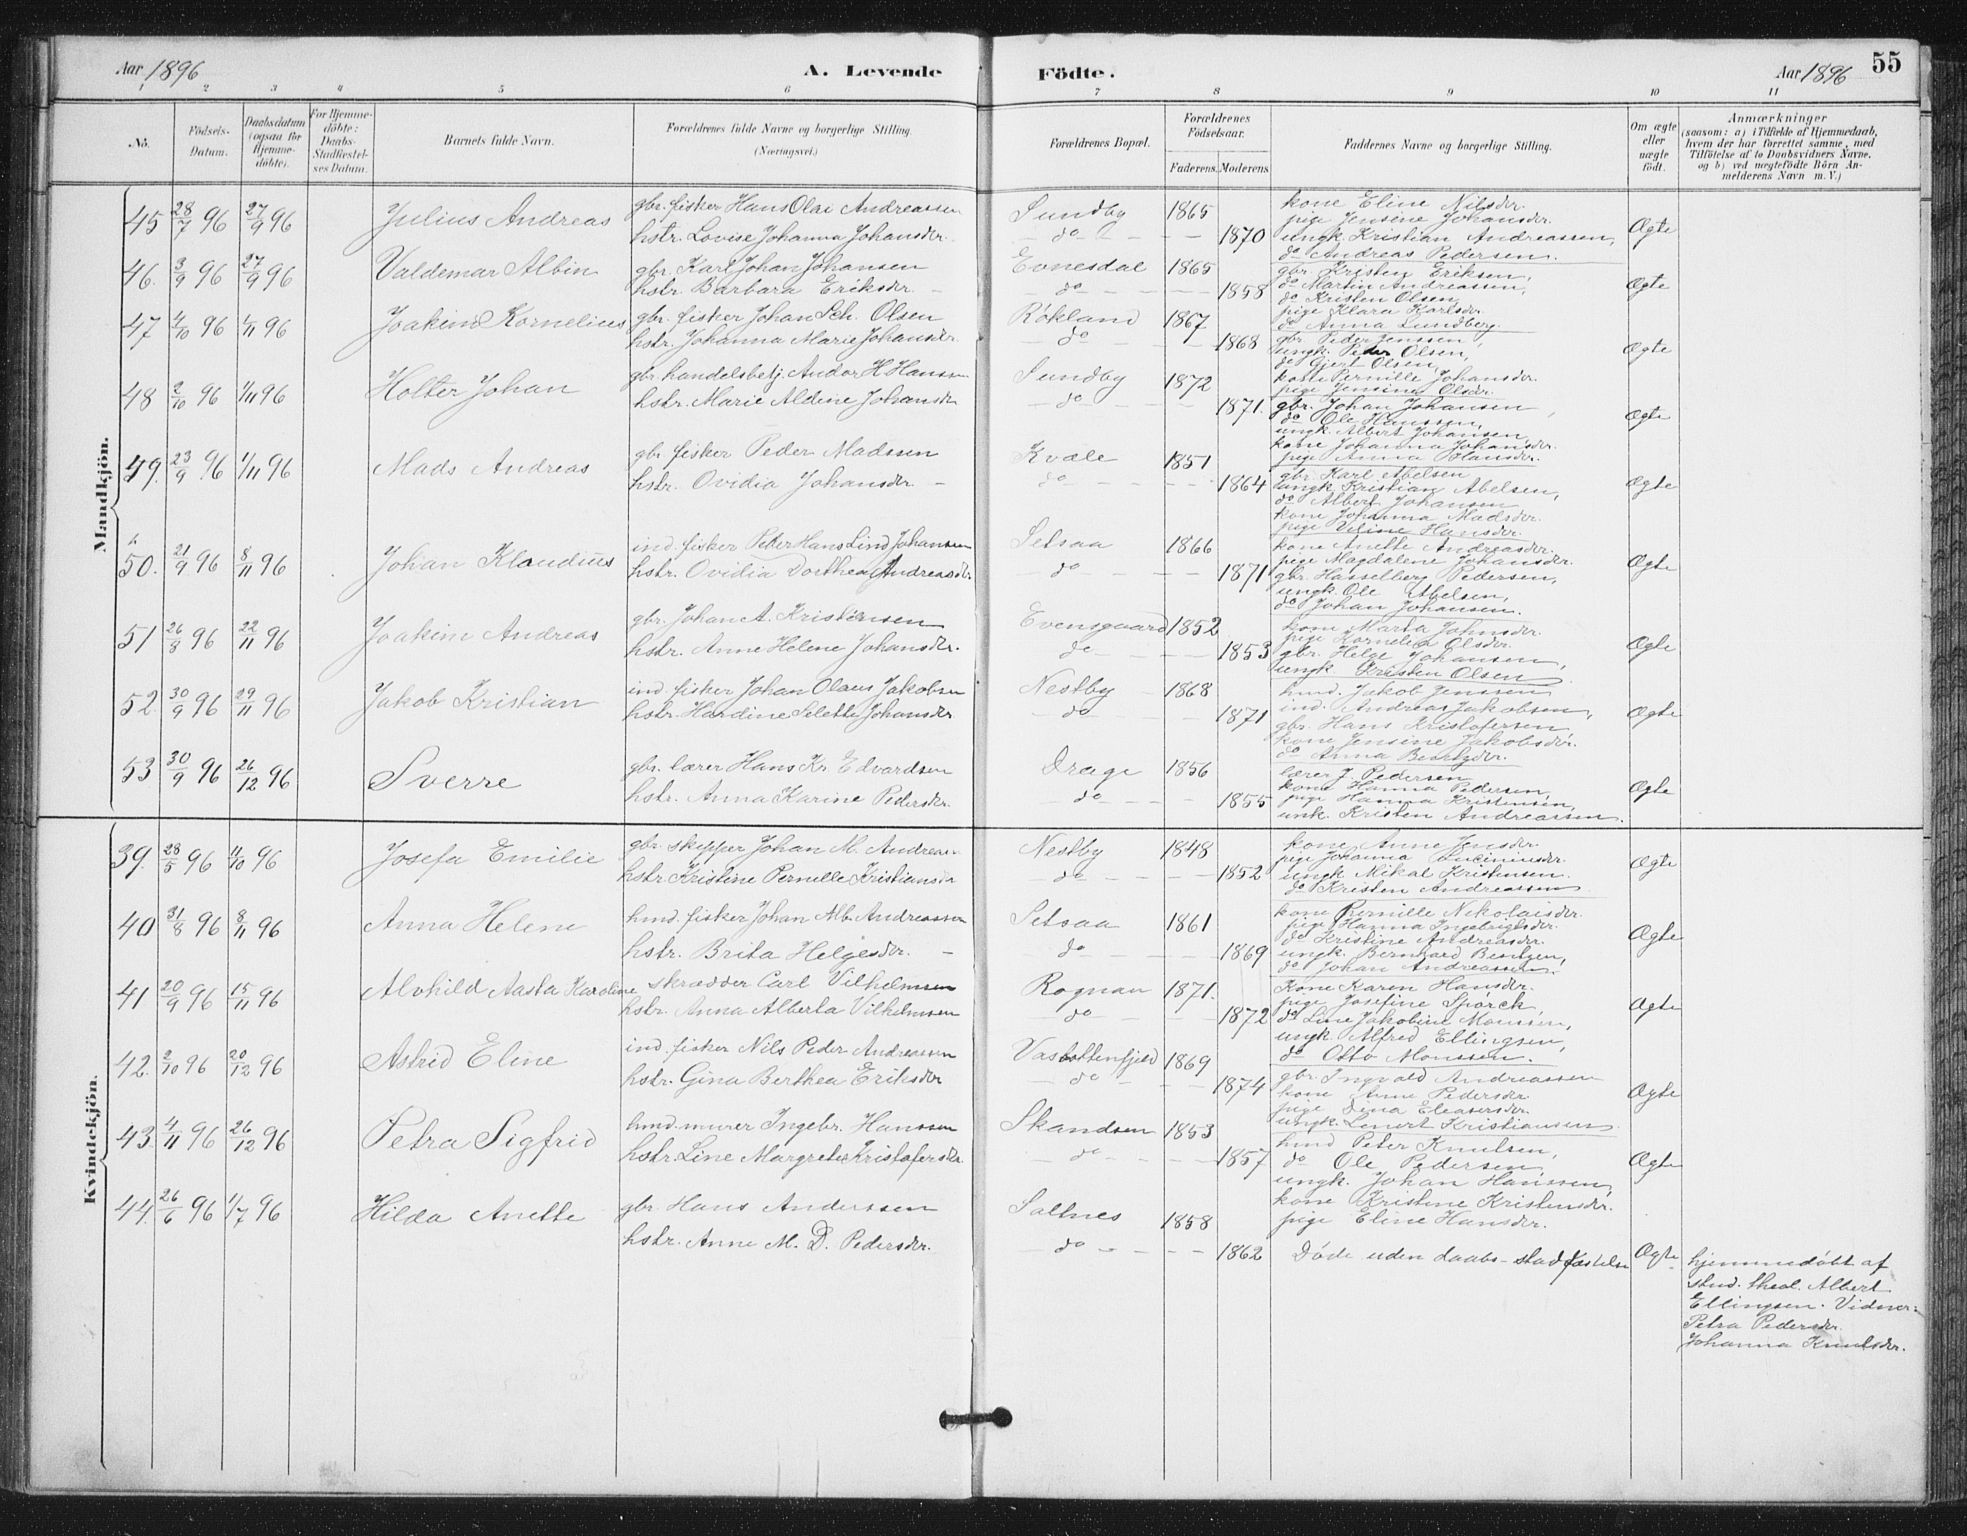 Aar 1896 A. Levende Födte. Aar 1896 55
1 2 3 4 5 6 7 8 9 10 11
No. Födsels-Datum. Daabsdatum (ogsaa for Hjemme-döbte). For Hjemme-döbte: Daabs-Stadfæstel-ses Datum. Barnets fulde Navn. Forældrenes fulde Navne og borgerlige Stilling. (Næringsvei.) Forældrenes Bopæl. Forældrenes Födselsaar. Faderens. Moderens. Faddernes Navne og borgerlige Stilling. Om ægte eller uægte födt. Anmærkninger (saasom: a) i Tilfælde af Hjemmedaab, hvem der har forrettet samme, med Tilföielse af to Daabsvidners Navne, og b) ved uægtefödte Börn An-melderens Navn m. V.)
Mandkjön.
45 28/7 96 27/9 96 Julius Andreas gbr. fisker Hans Olai Andreassen Sundby 1865 kone Eline Nilsdr.
pige Jensine Johansdr.
hstr. Lovise Johanna Johansdr. do 1870 ungk. Kristian Andreassen, Ægte
do Andreas Pedersen.
46. 3/9 96 27/9 96 Valdemar Albin gbr. Karl Johan Johansen Evnesdal 1865 gbr. Kristen Eriksen,
hstr. Barbara Eriksdr. do 1858 do Martin Andreassen, Ægte
do Kristen Olsen
pige Klara Karlsdr.
do Anna Lundberg.
47 4/10 96 1/11 96 Joakim Kornelius gbr. fisker Johan Sch. Olsen Rökland 1867 gbr. Peder Jenssen,
hstr. Johanna Marie Johansdr. do 1868 ungk. Peder Olsen, Ægte
do Gjert Olsen,
kone Pernille Johansdr.
pige Jensine Olsdr.
48 2/10 96 1/11 96 Holter Johan gbr. handelsbetj. Andor H. Hanssen Sundby 1872
hstr. Marie Aldine Johansdr do 1871. gbr. Johan Johansen, Ægte
do Ole Hanssen,
ungk. Albert Johansen
kone Johanna Johansdr.
pige Anna Hansdr.
49. 23/9 96 1/11 96 Mads Andreas gbr. fisker Peder Madssen Kvæle 1851 gbr. Karl Abelsen
hstr. Ovidia Johansdr. do 1864 ungk. Kristian Abelsen, Ægte
do Albert Johansen
kone Johanna Madsdr.
pige Hansdr.
50. 21/9 96 8/11 96 Johan Klaudius ind. fisker Peder Hans Lind Johansen Setsaa 1866 kone Anette Andreasdr.
pige Magdalene Johansdr.
hstr. Ovidia Dorthea Andreasdr. do 1871 gbr. Hasselberg Pedersen, Ægte
ungk Ole Abelsen,
do Johan Johansen.
51 26/8 96 22/11 96 Joakim Andreas gbr. Johan A. Kristensen Evensgaard 1852 kone Marta Johnsdr.
pige Kornelia Olsdr.
hstr. Anne Helene Johansdr. do 1853 gbr. Helge Johansen, Ægte
ungk Kristen Olsen
52. 30/9 96 29/11 96 Jakob Kristian ind. fisker Johan Olaus Jakobsen Nestby 1868 hmd. Jakob Jenssen
hstr. Hardine Selette Johansdr do 1871 ind. Andreas Jakobsen, Ægte
gbr. Hans Kristofersen
kone Jensine Jakobsdr.
do Anna
53 30/9 96 26/12 96 Sverre gbr. lærer Hans Kr. Edvardsen Drage 1856 lærer J. Pedersen
kone Hanna Pedersen,
hstr. Anna Karine Pedersdr. do 1855 pige Hanna Kristensen, Ægte
unk. Kristen Andreassen.
Kvindekjön.
39. 28/5 96 11/10 96 Josefa Emilie gbr. skipper Johan M. Andreas Nestby 1848 kone Anne Jensdr.
pige Johanna
hstr. Kristine Pernille Kristiansdr do 1852 ungk Mikal Kristensen. Ægte
do Kristen Andreassen
40 31/8 96 8/11 96 Anna Helene hmd. fisker Johan Alb. Andreassen Setsaa 1861 kone Pernille Nikolaisdr.
pige Hanna Ingebrigtsdr.
do Kristine Andreasdr.
hstr. Brita Helgesdr. do 1869 ungk. Bernhard Bentzen, Ægte
do Johan Andreassen.
41 20/9 96 15/11 96 Alvhild Aasta Karoline skrædder Carl Vilhelmsen Rognan 1871. Kone Karen Hansdr.
pige Josefine Spörck,
hstr. Anna Alberta Vilhelmsen do 1872 do Line Jakobine Monssen, Ægte
ungk Alfred Ellingsen,
do Otto Monssen.
42. 2/10 96 20/12 96 Astrid Eline ind. fisker Nils Peder Andreassen Vasbottenfjeld 1869
hstr. Gina Berthea Eriksdr do 1874 gbr. Ingvald Andreassen Ægte
kone Anne Pedersdr
pige Dina Eleasersdr.
ungk. Lenert Kristiansen
43. 4/11 96 26/12 96 Petra Sigfrid hmd. murer Ingebr. Hanssen Skandsen 1853 hmd Peter Knutsen,
hstr. Line Margrete Kristofersdr. do 1857 do Ole Pedersen, Ægte
ungk. Johan Hanssen,
kone Kristine Kristensdr.
pige Eline Hansdr.
44. 26/6 96 1/7 96 Hilda Anette gbr. Hans Anderssen Saltnes 1858
hstr. Anne M. D. Pedersdr. do 1862 Döde uden daabs-stadfæstelse Ægte hjemmedöbt af
stud. theol. Albert
Ellingsen. Vidner:
Petra Pedersdr.
Johanna Knutsdr.